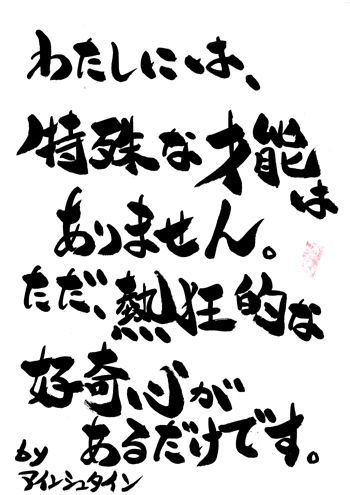 わたしには、
特殊な才能は
ありません。
ただ、熱狂的な
好奇心が
あるだけです。
by
アインシュタイン